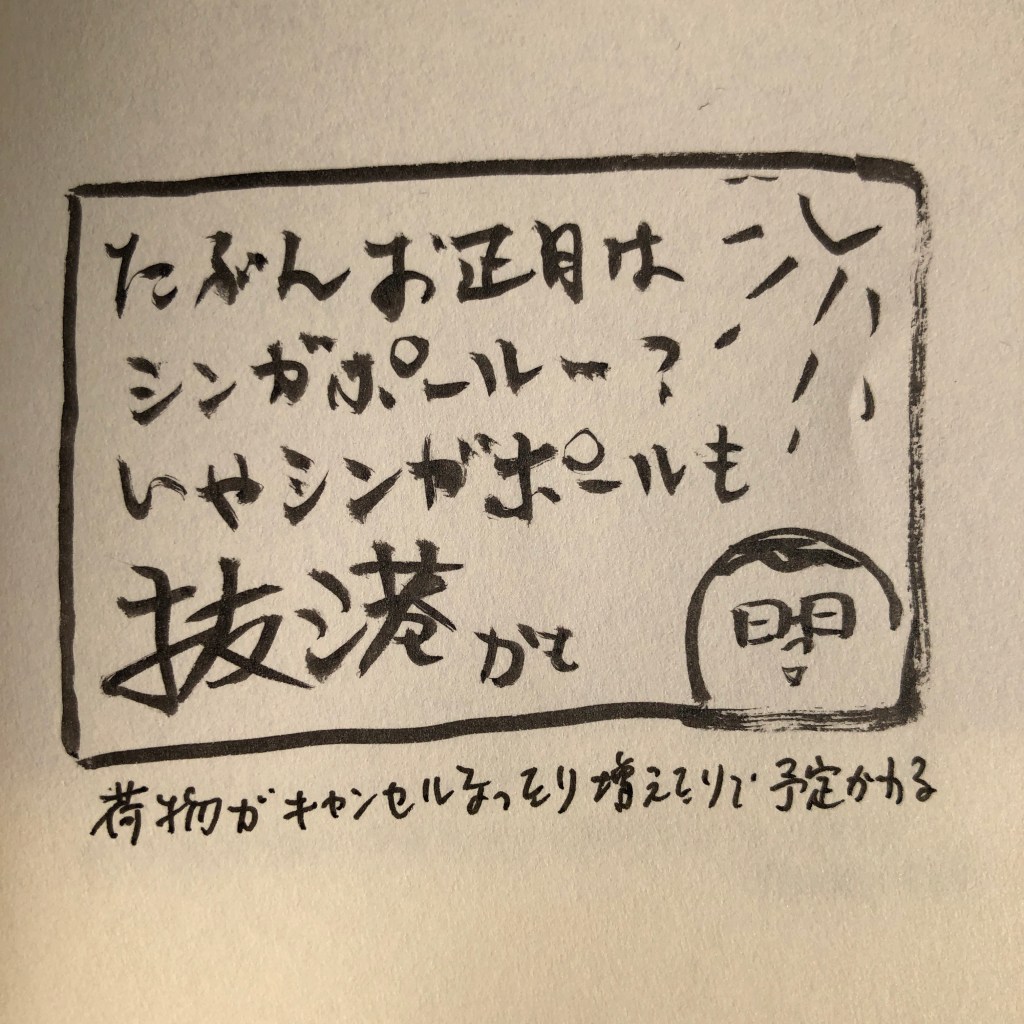 たぶんお正月は
シンガポールー?
いやシンガポールも
抜港かも
荷物がキャンセルなったり増えたりで予定かわる